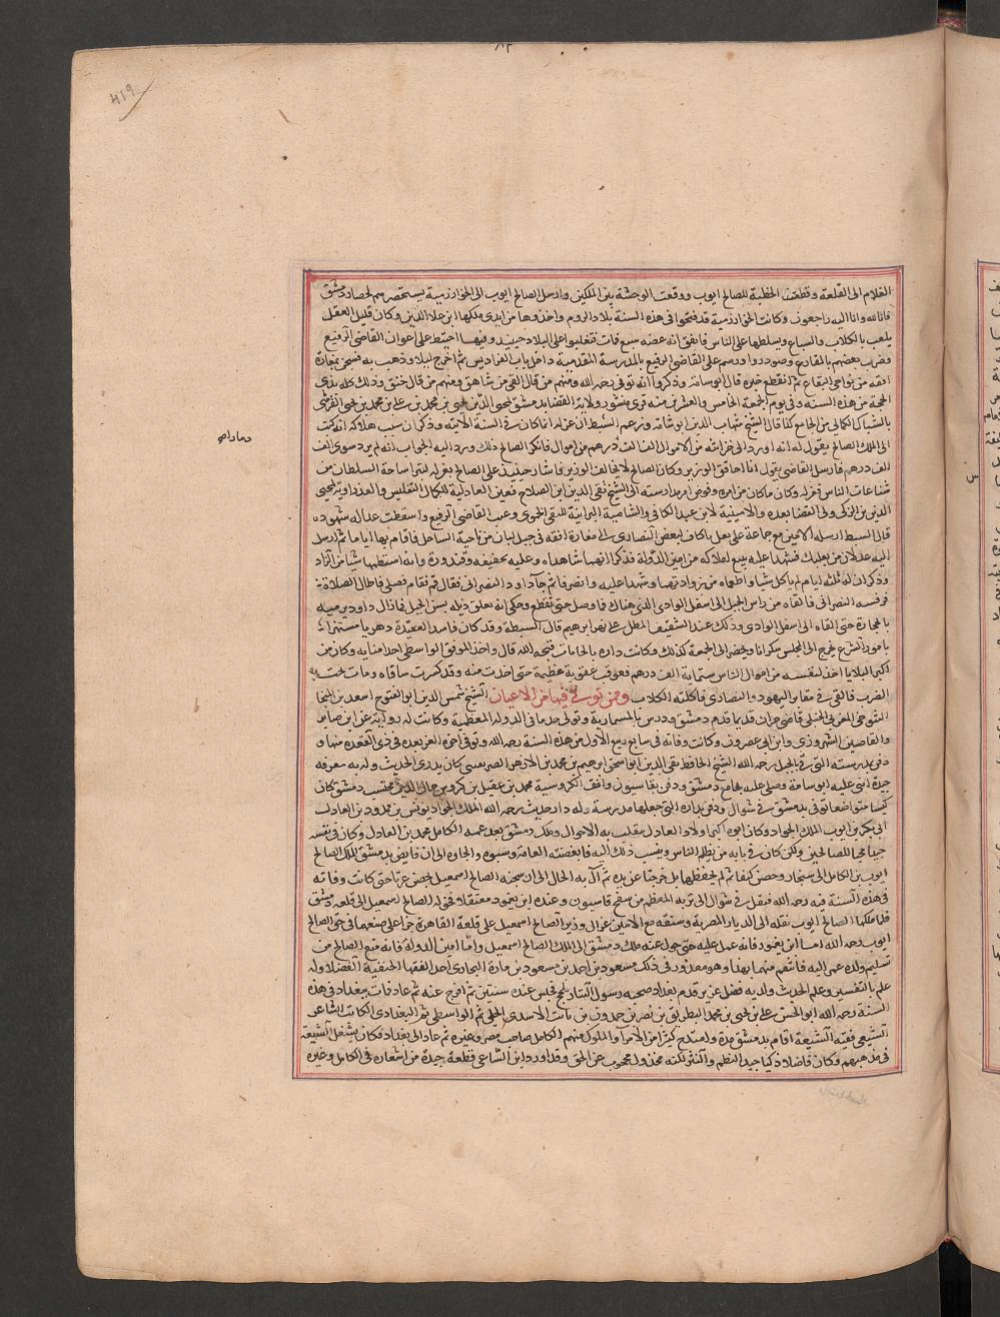 419
الغلام الى القلعة وقطعت الخطبة للصالح ايوب ووقعت الوحشة بين الملكين وارسل الصالح ايوب الى الخوارزمية يستحضرهم لحصار دمشق
فانا لله وانا اليه راجعون وكانت الخوارزمية قد فتحوا في هذه السنة بلاد الروم واخذوها من ايدي ملكها ابن علاء الدين وكان قليل العقل
يلعب بالكلاب والسباع ويسلطها على الناس فاتفق انه عضه سبع فمات فتغلبوا على البلاد حينئذ وفيها احتيط على اعوان القاضي الرفيع
وضرب بعضهم بالمقارع وصودروا ورسم على القاضي الرفيع بالمدرسة المقدمية داخل باب الفراديس ثم اخرج ليلا وذهب به فسجن بمغارة
افقه من نواحي البقاع ثم انقطع خبره قال ابو شامة وذكروا انه توفي رحمه الله ومنهم من قال القي من شاهق ومنهم من قال خنق وذلك كله بذي
الحجة من هذه السنة وفي يوم الجمعة الخامس والعشرين منه قرئ منشور ولاية القضا بدمشق لمحيي الدين بن محمد بن علي بن محمد بن يحيى القرشي
بالشباك الكمالي من الجامع كذا قال الشيخ شهاب الدين ابو شامة وزعم السبط ان عزله انما كان في السنة الاتية وذكر ان سبب هلاكه انه كتب
الى الملك الصالح يقول له انه اورد الى خزانته من الاموال الف الف درهم من اموال فانكر الصالح ذلك ورد اليه الجواب انه لم يرد سوى الف
الف درهم فارسل القاضي يقول انا احاقق الوزير وكان الصالح لا يخالف الوزير فاشار حينئذ على الصالح بعزله لتبرا ساحة السلطان من
شناعات الناس فعزله وكان ما كان من امره وفوض امر مدارسه الى الشيخ تقي الدين ابن الصلاح فعين العادلية للكمال التفليسي والعذراوية لمحيي
الدين بن الزكي ولي القضا بعده والامينية لابن عبد الكافي والشامية البرانية للتقي الحموي وغيب القاضي الرفيع واسقطت عدالة شهوده
قال السبط ارسله الامين مع جماعة على بغل باكاف لبعض النصارى الى مغارة افقه في جبل لبنان من ناحية الساحل فاقام بها اياما ثم ارسل
اليه عدلين من بعلبك فشهدا عليه ببيع املاكه من امين الدولة فذكرا انهما شاهداه وعليه تخفيفة وقندورة وانه استطعمهما شيا من الزاد
وذكر ان له ثلثة ايام لم ياكل شيا واطعماه من زوادتهما وشهدا عليه وانصرفا ثم جاء داود النصراني فقال له قم فقام فصلى فاطال الصلاة
فرفسه النصراني فالقاه من راس الجبل الى اسفل الوادي الذي هناك فما وصل حتى تقطع وحكي انه تعلق ذيله بسن الجبل فما زال داود يرميه
بالحجارة حتى القاه الى اسفل الوادي وذلك عند الشقيف المطل على نهر ابرهيم قال السبط وقد كان فاسد العقيدة دهريا مستهزا
بامور الشرع يخرج الى المجلس سكرانا ويحضر الى الجمعة كذلك وكانت داره بالحانات قبحه الله قال واخذ الموفق الواسطي احد امنايه وكان من
اكبر البلايا اخذ لنفسه من اموال الناس ستماية الف درهم فعوقب عقوبة عظيمة حتى اخذت منه وقد كسرت ساقاه ومات تحت
الضرب فالقي في مقابر اليهود والنصارى فاكلته الكلاب وممن توفي فيها من الاعيان الشيخ شمس الدين ابو الفتوح اسعد بن المنجا
التنوخي المعري الحنبلي قاضي حران قديما قدم دمشق ودرس بالمسمارية وتولى خدما في الدولة المعظمية وكانت له رواية عن ابن صابر
والقاضيين الشهرزوري وابن ابي عصرون وكانت وفاته في سابع ربيع الاول من هذه السنة رحمه الله وتوفي اخوه العز بعده في ذي القعدة منها و
دفن بمدرسته التي بالجبل رحمه الله الشيخ الحافظ تقي الدين ابو اسحق ابرهيم بن محمد بن الازهر الصريفيني كان يدري الحديث وله به معرفة
جيدة اثنى عليه ابو شامة وصلى عليه بجامع دمشق ودفن بقاسيون واقف الكروسية محمد بن عقيل بن كروس جمال الدين محتسب دمشق كان
كيسا متواضعا توفي بدمشق في شوال ودفن بداره التي جعلها مدرسة وله دار حديث رحمه الله الملك الجواد يونس بن ممدود بن العادل
ابي بكر بن ايوب الملك الجواد وكان ابوه اكبر اولاد العادل تقلبت به الاحوال وملك دمشق بعد عمه الكامل محمد بن العادل وكان في نفسه
جيدا محبا للصالحين ولكن كان في بابه من يظلم الناس وينسب ذلك اليه فابغضته العامة وسبوه والجاوه الى ان قايض بدمشق الملك الصالح
ايوب بن الكامل الى سنجار وحصن كيفا ثم لم يحفظها بل خرجتا عن يده ثم آل به الحال الى ان سجنه الصالح اسمعيل بحصن عزتا حتى كانت وفاته
في هذه السنة فيه رحمه الله فنقل في شوال الى تربة المعظم من سفح قاسيون وعنده ابن يغمور معتقلا فحوله الصالح اسمعيل الى قلعة دمشق
فلما ملكها الصالح ايوب نقله الى الديار المصرية وشنقه مع الامين غزال وزير الصالح اسمعيل على قلعة القاهرة جزاء على صنعهما في حق الصالح
ايوب رحمه الله اما ابن يغمور فانه عمل عليه حتى حول عنه ملك دمشق الى الملك الصالح اسمعيل واما امين الدولة فانه منع الصالح من
تسليم ولده عمر اليه فانتقم منهما بهذا وهو معذور في ذلك مسعود بن احمد بن مسعود بن مازة البخاري احد الفقها الحنفية الفضلا وله
علم بالتفسير وعلم الحديث ولديه فضل غزير قدم بغداد صحبة رسول التتار للحج فحبس عنده سنتين ثم افرج عنه ثم عاد فمات ببغداد في هذه
السنة رحمه الله ابو الحسن علي بن يحيى بن محمد البطريق بن نصر بن حمدون بن ثابت الاسدي الحلي ثم الواسطي ثم البغدادي الكاتب الشاعر
الشيعي فقيه الشيعة اقام بدمشق مدة وامتدح كثيرا من الامرا والملوك منهم الكامل صاحب مصر وغيره ثم عاد الى بغداد فكان يشغل الشيعة
في مذهبهم وكان فاضلا ذكيا جيد النظم والنثر لكنه مخذول محجوب عن الحق وقد اورد ابن الساعي قطعة جيدة من اشعاره في الكامل وغيره